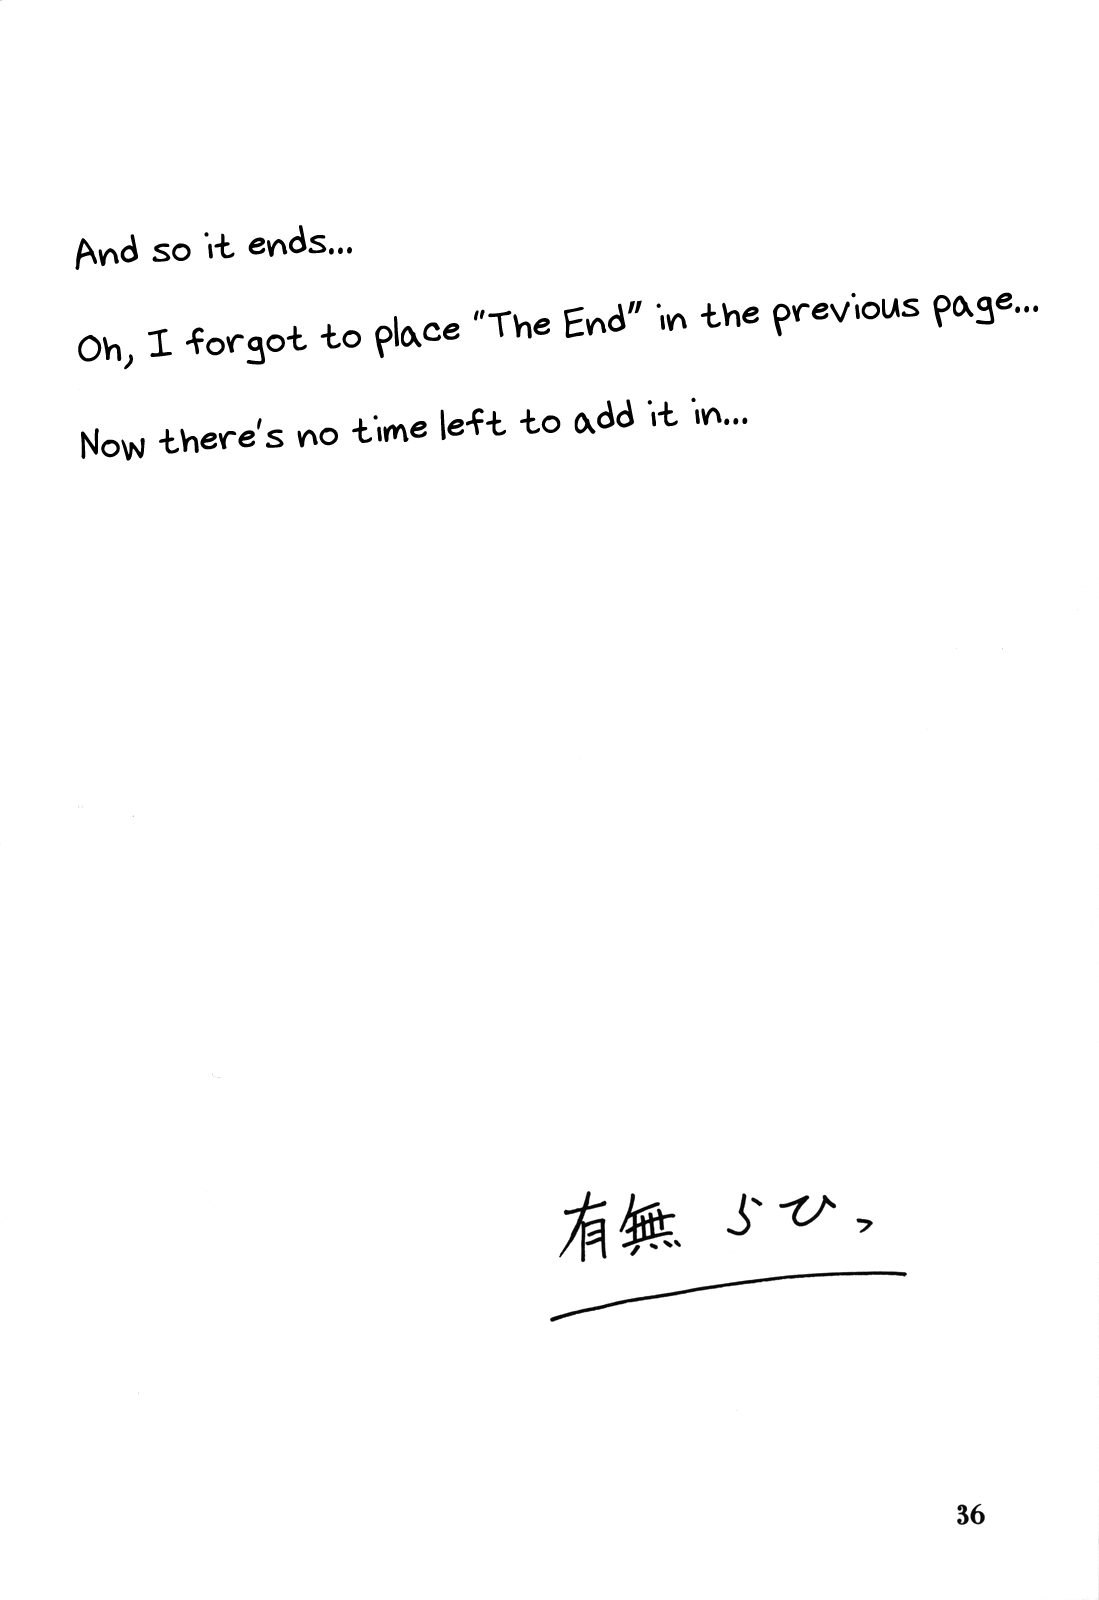 And so it ends...
Oh, I forgot to place "The End" in the previous page...
Now there's no time left to add it in...
有無 らひ、
36